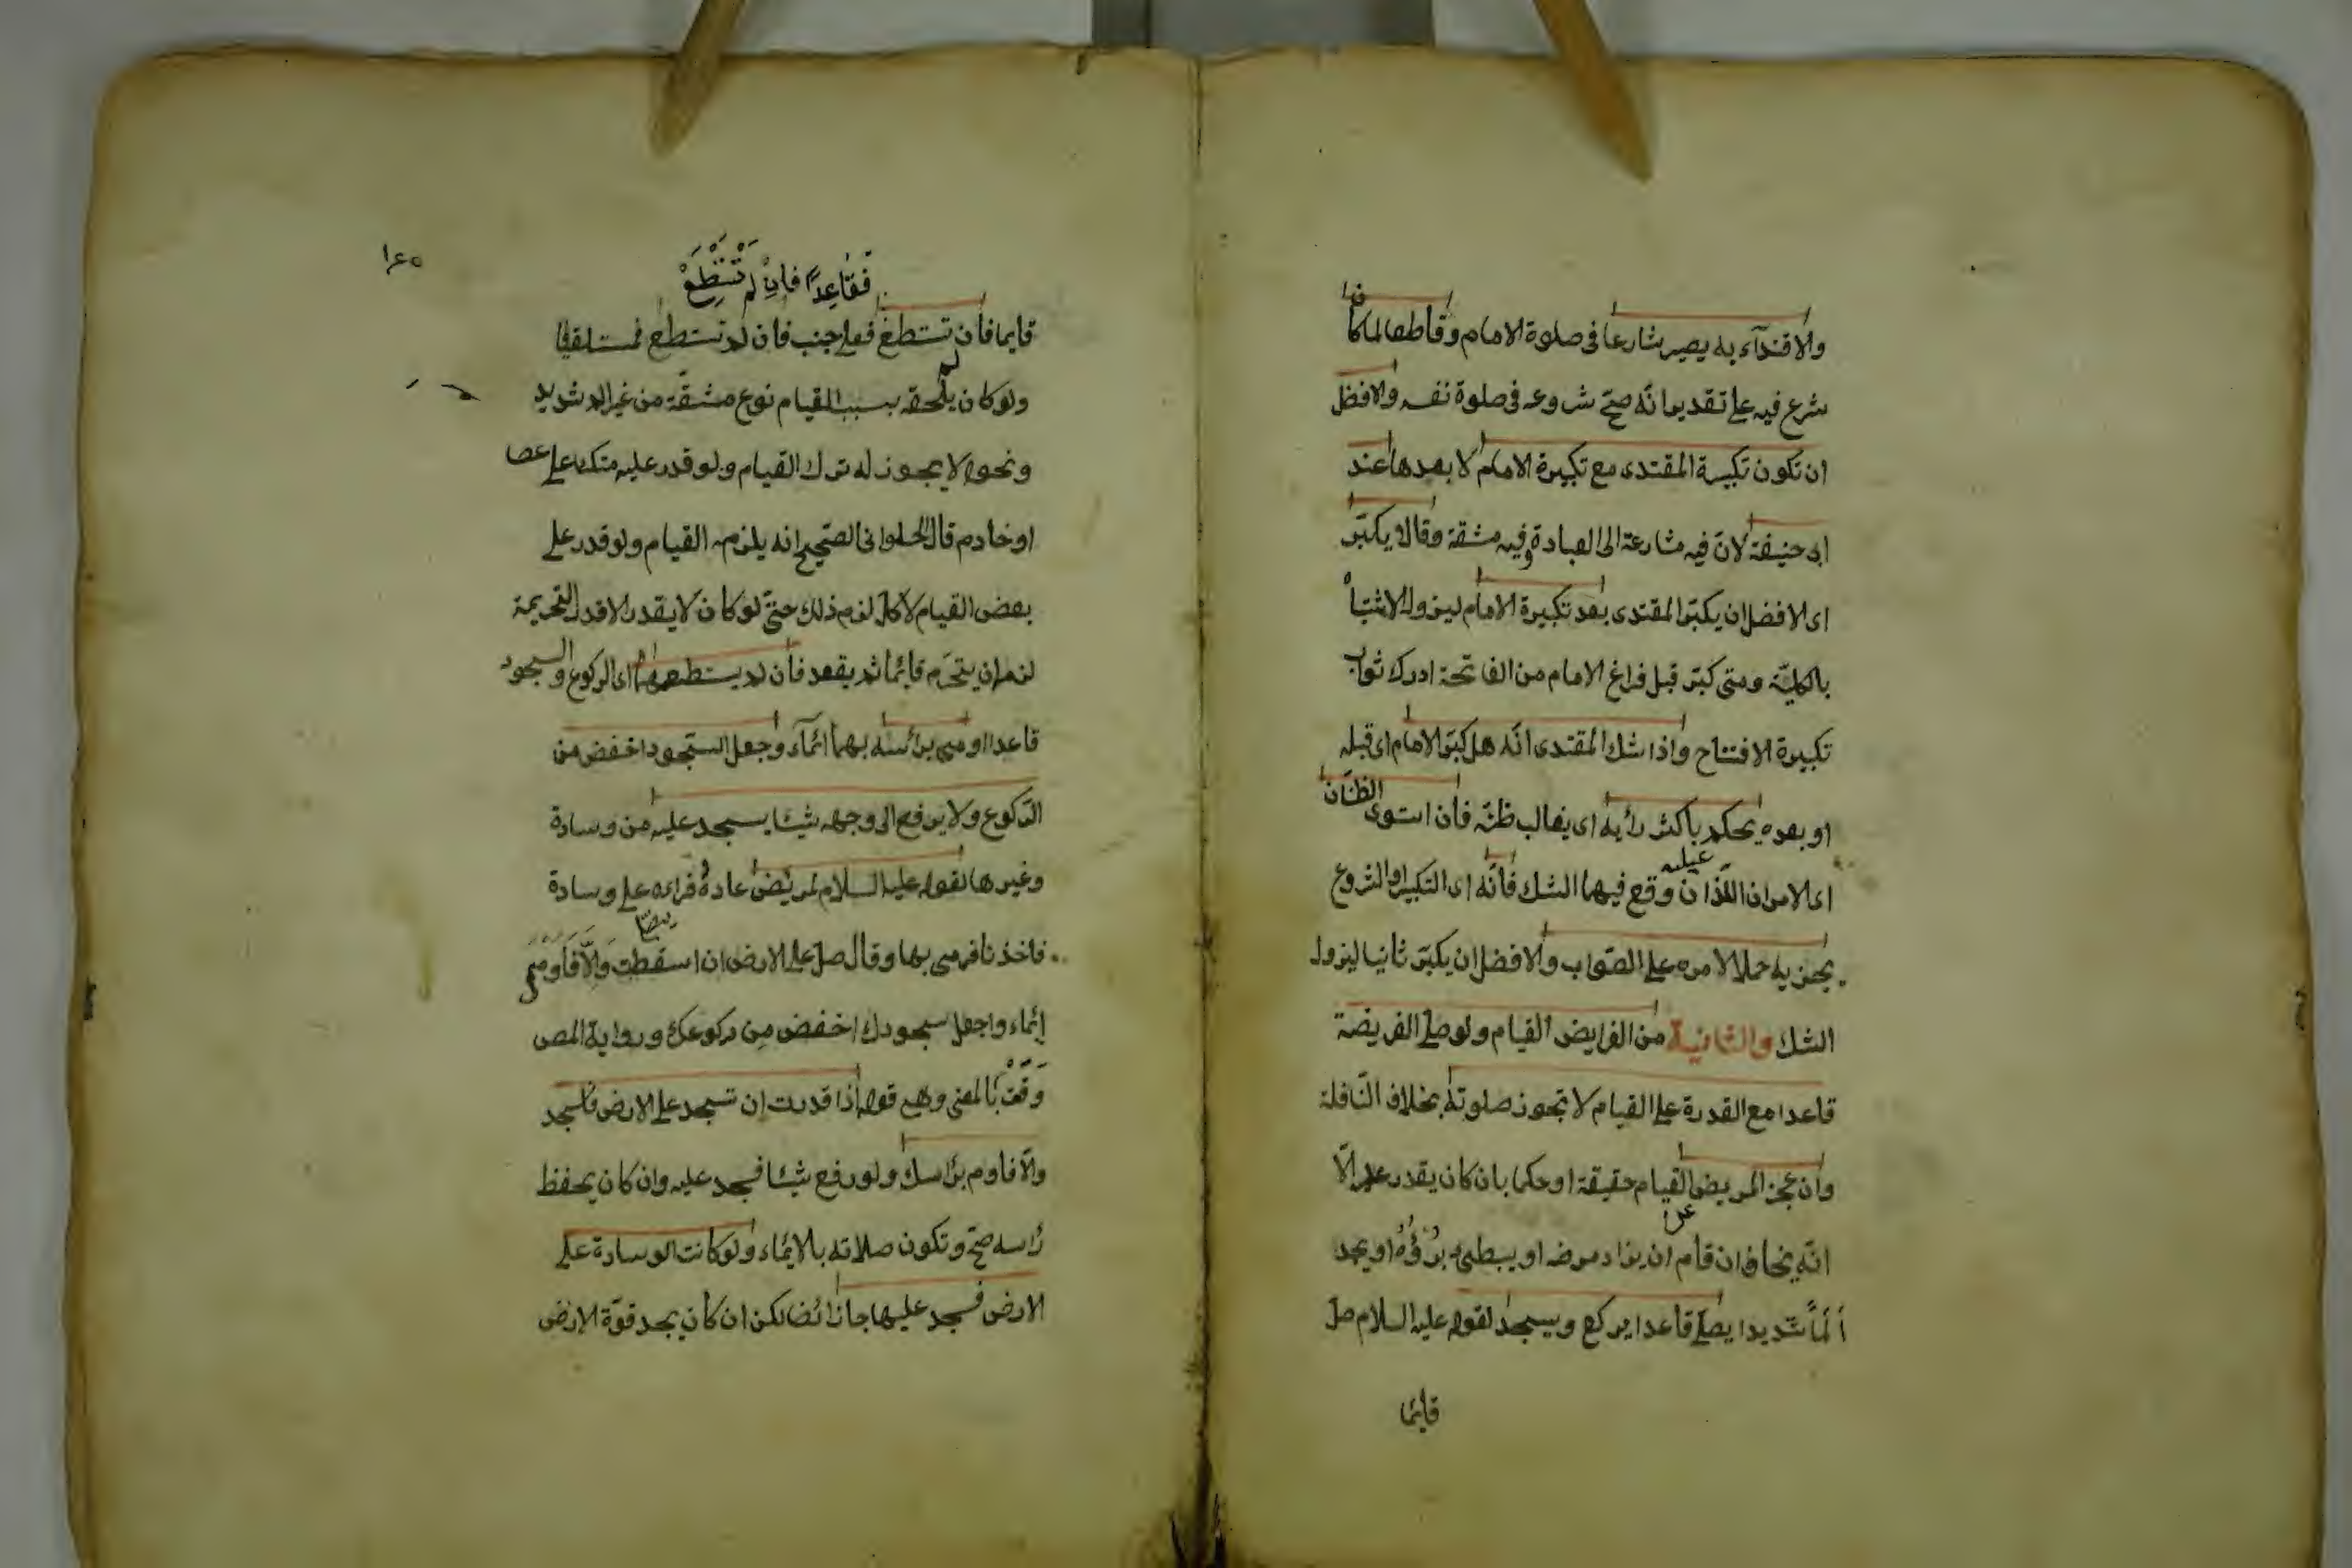 والاقتدآء به يصير شارعا فى صلوة الامام وقاطعا لما كان
شرع فيه على تقدير انّه صحّ شروعه فى صلوة نفسه والافظل
ان تكون تكبيرة المقتدى مع تكبيرة الامام لا بعدها عند
ابى حنيفة لانّ فيه مشارعة الى العبادة وفيه مشقة وقالا يكبّر
اى الافضل ان يكبّر المقتدى بعد تكبيرة الامام ليزول الاشتباه
بالكليّة ومتى كبّر قبل فراغ الامام من الفاتحة ادرك ثواب
تكبيرة الافتتاح واذا شك المقتدى انّه هل كبّر الامام اى قبله
او بعده يحكم باكثر رأيه اى بغالب ظنّه فان استوى الظنّان
اى الامران اللّذان وقع فيهما الشك فانّه اى التكبير او الشروع
عليه
يجزيه حملا لامره على الصّواب والافضل ان يكبّر ثانيا ليزول
الشك والثانية من الفرايض القيام ولو صلى الفريضة
قاعدا مع القدرة على القيام لا تجوز صلوته بخلاف النّافلة
وان عجز المريض القيام حقيقة او حكما بان كان يقدر عليه الّا
عن
انّه يخاف ان قام ان يزاد مرضه او يبطئ برؤه او يجد
ألمًا شديدا يصلّى قاعدا يركع ويسجد لقوله عليه السلام صل
قايما
١٤٥
فَقَاعِدًا فَاِنْ لَمْ تَسْتَطِعْ
قايما فان لم تستطع فعلى جنب فان لم تستطع فمستلقيا
ولو كان يلحقه بسبب القيام نوع مشقّة من غير الم شديد
ونحوه لا يجوز له ترك القيام ولو قدر عليه متكئا على عصا
او خادم قال الحلوانى الصّحيح انه يلزمه القيام ولو قدر على
بعض القيام لا كله لزم ذلك حتّى لو كان لا يقدر الا قدر التحريمة
لزمه ان يتحرّم قائما ثم يقعد فان لم يستطعهما اى الركوع والسجود
قاعدا اومى برأسه بهما ائماء وجعل السّجود اخفض من
الرّكوع ولا يرفع الى وجهه شيئا يسجد عليه من وسادة
وغيرها لقوله عليه السلام لمريض عاده فراءه على وسادة
يصلّى
فاخذنا فرمى بها وقال صل على الارض ان اسقطت وَالّا فَاَومِئ
إئماء واجعل سجودك اخفض من ركوعك ورواية المص
وَقَعَتْ بالمعنى وهى قوله اذا قدرت ان تسجد على الارض فاسجد
والّا فاوم برأسك ولو رفع شيئا فسجد عليه وان كان يخفظ
رأسه صحّ وتكون صلاته بالائماء ولو كانت الوسادة على
الارض فسجد عليها جاز ائضا لكن ان كان يجد قوّة الارض